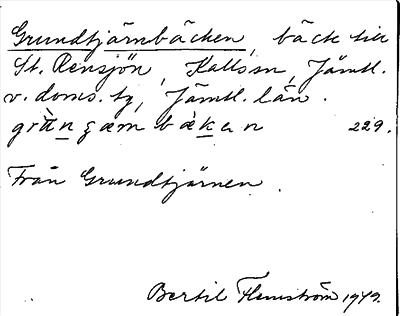 Grundtjärnbäcken, bäck till
St. Rensjön, Kallssn, Jämtl.
v. doms. tg, Jämtl. län.
229.
Från Grundtjärnen.
Bertil Flemström 1949.